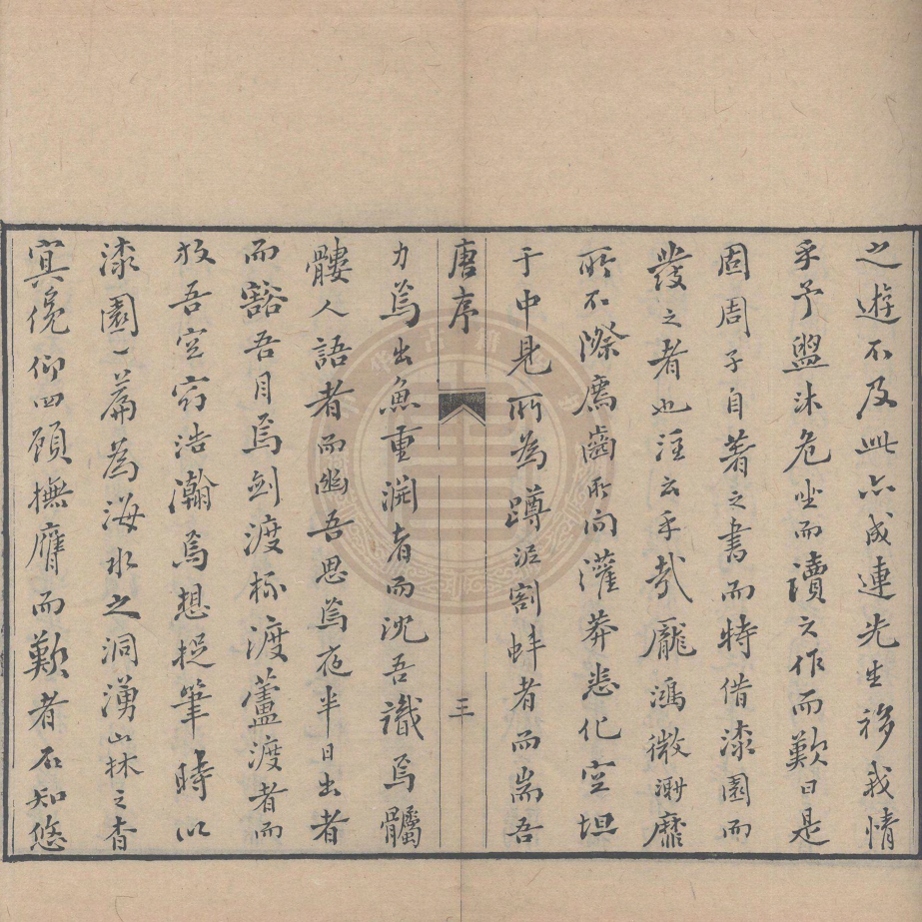 之遊不及此亦成連先生移我情
乎予盥沐危坐而讀之作而歎曰是
固周子自著之書而特借漆園而
發之者也注云乎哉龎鴻微渺靡
所不際鷹齒所向灌莽悉化空坦
于中見所為蹲沠割蚌者而耑吾
唐序
三
力焉出魚重渊者而沈吾識焉髑
髏人語者而幽吾思焉夜半日出者
而豁吾目焉剑渡杯渡蘆渡者而
放吾空窍浩瀚焉想捉筆時以
漆園一篇為海水之洞湧山林之杳
冥俛仰四顧撫膺而歎者不知悠